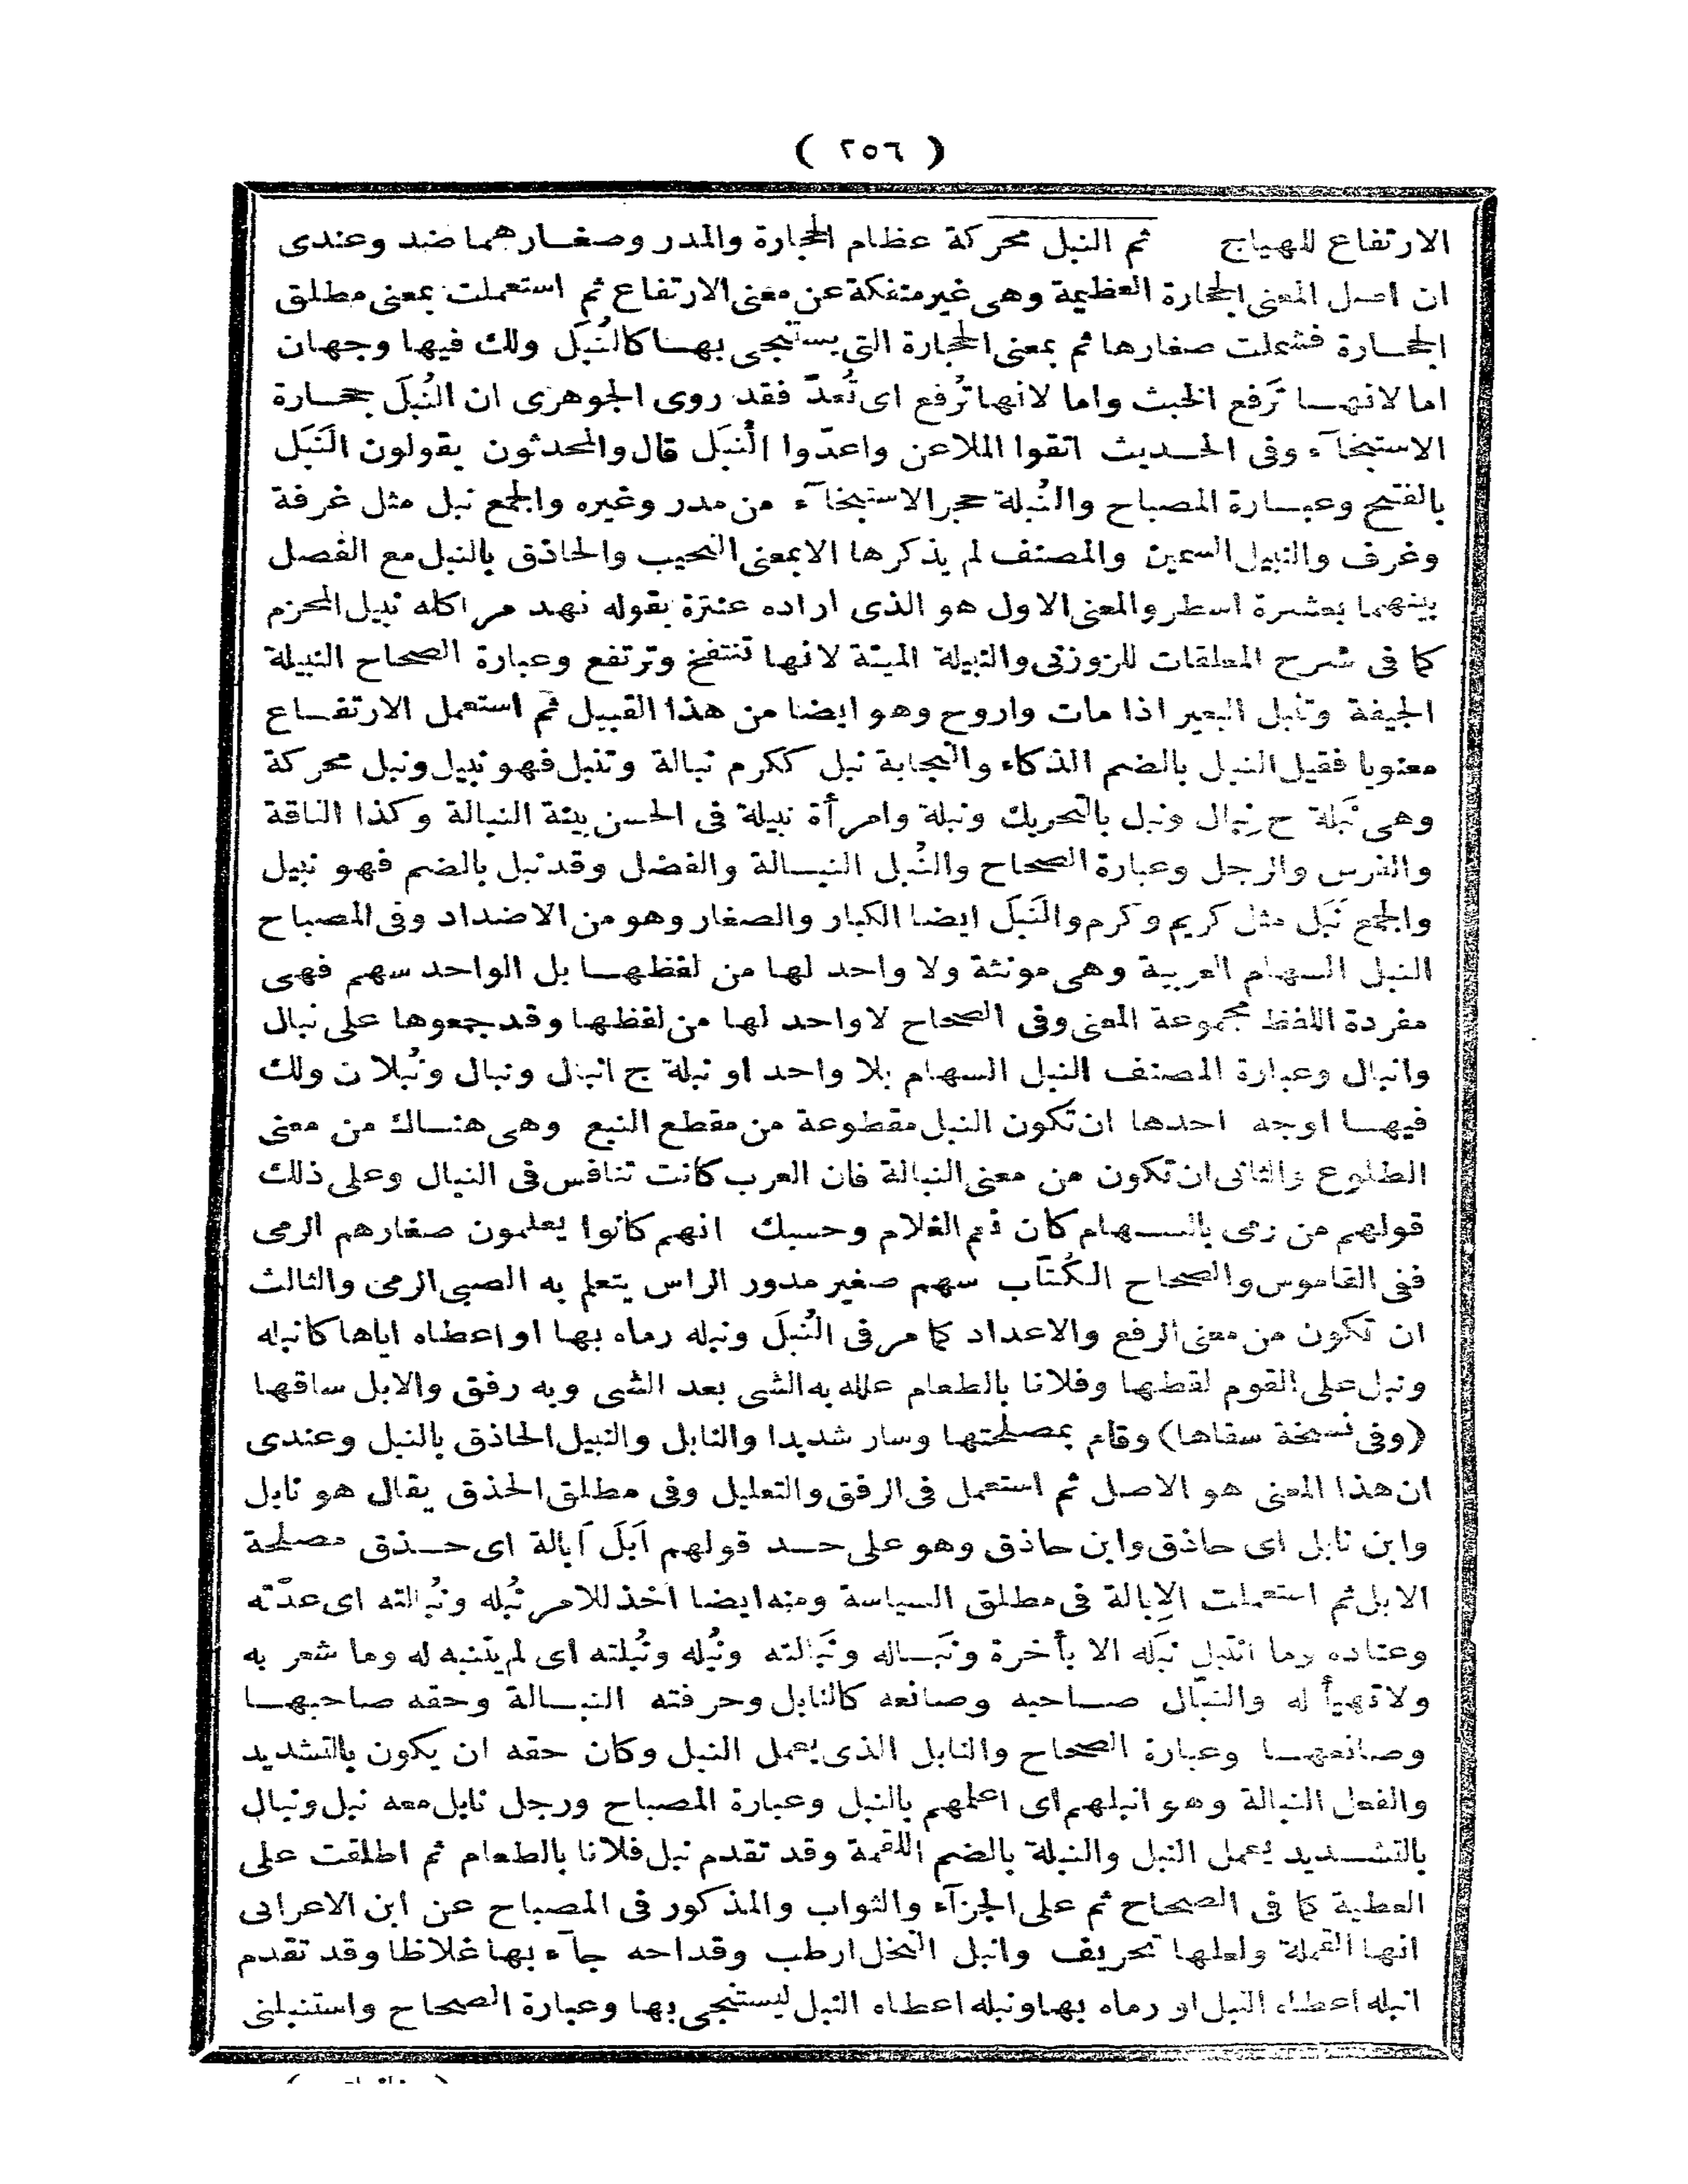 ( ٢٥٦ )
الارتفاع للهياج ثم النبل محركة عظام الحجارة والمدر وصغارهما ضد وعندى
ان اصل المعنى الحجارة العظيمة وهى غير منفكة عن معنى الارتفاع ثم استعملت بمعنى مطلق
الحجارة فشملت صغارها ثم بمعنى الحجارة التى يستنجى بها كالنُبَل ولك فيها وجهان
اما لانها تَرفع الخبث واما لانها تُرفع اى تُعدّ فقد روى الجوهرى ان النُبَل حجارة
الاستنجآء وفى الحديث اتقوا الملاعن واعدّوا النُبَل قال والمحدثون يقولون النَبَل
بالفتح وعبارة المصباح والنُبلة حجر الاستنجآء من مدر وغيره والجمع نبل مثل غرفة
وغرف والنبيل السمين والمصنف لم يذكرها الا بمعنى النجيب والحاذق بالنبل مع الفصل
بينهما بعشرة اسطر والمعنى الاول هو الذى اراده عنترة بقوله نهد مراكله نبيل المحزم
كما فى شرح المعلقات للزوزنى والنبيلة الميتة لانها تنتفخ وترتفع وعبارة الصحاح النبيلة
الجيفة وتنبل البعير اذا مات واروح وهو ايضا من هذا القبيل ثم استعمل الارتفاع
معنويا فقيل النبل بالضم الذكاء والنجابة نبل ككرم نبالة وتنبل فهو نبيل ونبل محركة
وهى نَبَلة ج نِبال ونبل بالتحريك ونبلة وامرأة نبيلة فى الحسن بينة النبالة وكذا الناقة
والفرس والرجل وعبارة الصحاح والنُبل النبالة والفضل وقد نبل بالضم فهو نبيل
والجمع نَبَل مثل كريم وكرم والنَبَل ايضا الكبار والصغار وهو من الاضداد وفى المصباح
النبل السهام العربية وهى مونثة ولا واحد لها من لفظها بل الواحد سهم فهى
مفردة اللفظ مجموعة المعنى وفى الصحاح لا واحد لها من لفظها وقد جمعوها على نبال
وانبال وعبارة المصنف النبل السهام بلا واحد او نبلة ج انبال ونبال ونُبلان ولك
فيها اوجه احدها ان تكون النبل مقطوعة من مقطع النبع وهى هناك من معنى
الطلوع والثانى ان تكون من معنى النبالة فان العرب كانت تنافس فى النبال وعلى ذلك
قولهم من رمى بالسهام كان نعم الغلام وحسبك انهم كانوا يعلمون صغارهم الرمى
ففى القاموس والصحاح الكُتّاب سهم صغير مدور الراس يتعلم به الصبى الرمى والثالث
ان تكون من معنى الرفع والاعداد كما مر فى النُبَل ونبله رماه بها او اعطاه اياها كانبله
ونبل على القوم لقطها وفلانا بالطعام علله به الشى بعد الشى وبه رفق والابل ساقها
(وفى نسخة سقاها) وقام بمصلحتها وسار شديدا والنابل والنبيل الحاذق بالنبل وعندى
ان هذا المعنى هو الاصل ثم استعمل فى الرفق والتعليل وفى مطلق الحذق يقال هو نابل
وابن نابل اى حاذق وابن حاذق وهو على حد قولهم اَبَلَ اَبالة اى حذق مصلحة
الابل ثم استعملت الاِبالة فى مطلق السياسة ومنه ايضا اخذ للامر نُبله ونُبالته اى عدّته
وعتاده وما انتبل نَبَله الا بأخرة ونَبَاله ونَبَالته ونُبله ونُبلته اى لم يتنبه له وما شعر به
ولا تهيأ له والنبّال صاحبه وصانعه كالنابل وحرفته النبالة وحقه صاحبها
وصانعها وعبارة الصحاح والنابل الذى يعمل النبل وكان حقه ان يكون بالتشديد
والفعل النبالة وهو انبلهم اى اعلمهم بالنبل وعبارة المصباح ورجل نابل معه نبل ونبال
بالتشديد يعمل النبل والنبلة بالضم اللقمة وقد تقدم نبل فلانا بالطعام ثم اطلقت على
العطية كما فى الصحاح ثم على الجزآء والثواب والمذكور فى المصباح عن ابن الاعرابى
انها القملة ولعلها تحريف وانبل النخل ارطب وقداحه جآء بها غلاظا وقد تقدم
انبله اعطاه النبل او رماه بها ونبله اعطاه النبل ليستنجى بها وعبارة الصحاح واستنبلنى